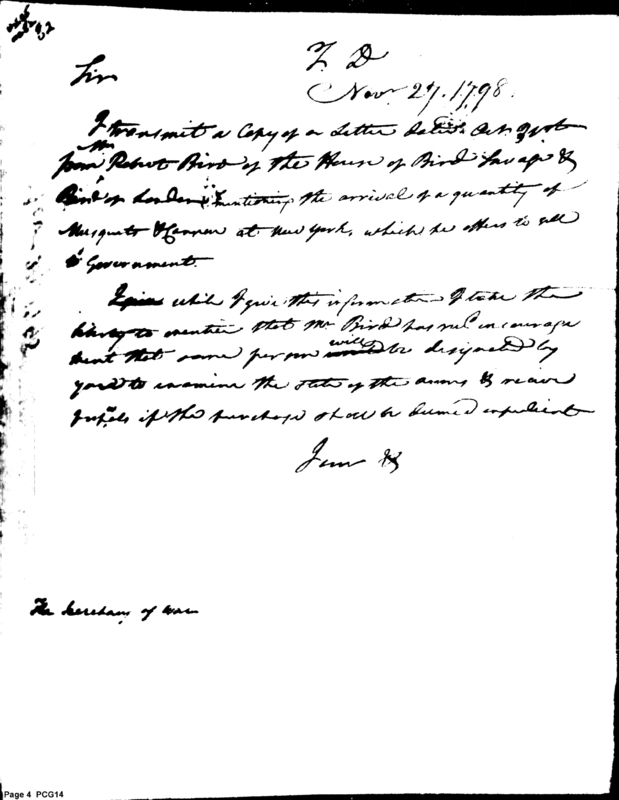 T. D
Nov. 27. 1798.
Sir
I transmit a Copy of a Letter dated Oct. 31st
from Mr Robert Bird of the House of Bird Savage &
Bird of London mentioning the arrival of a quantity of
Musquets & Cannon at New York, which he offers to sell
to Government.
while I give this information I take the
liberty to mention that Mr Bird has recd encourage
ment that some person will be designated by
you to examine the state of the arms & receive
if the purchase shall be deemed expedient
I am &c
The Secretary of War
Page 4 PCG14